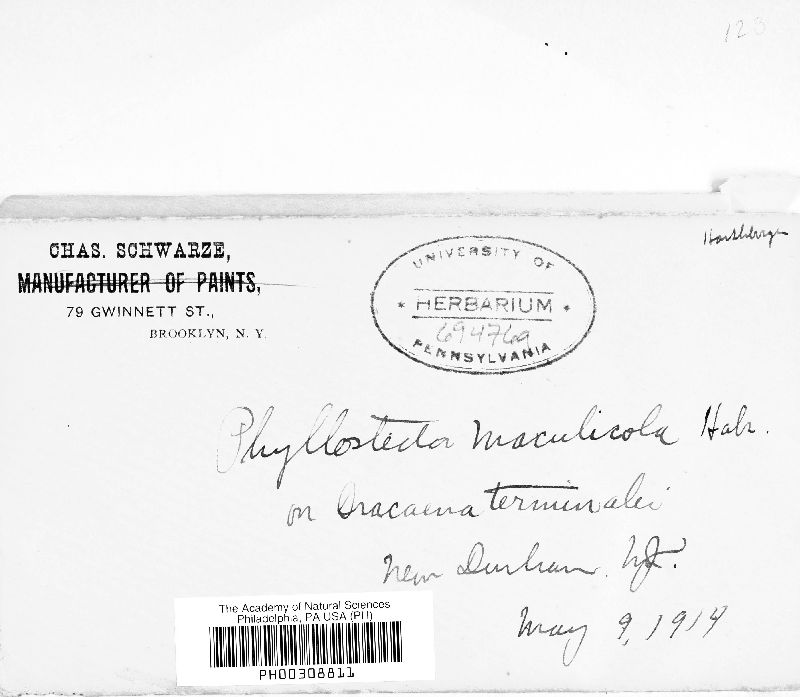 123
Harshberger
CHAS. SCHWARZE,
MANUFACTURER OF PAINTS,
79 GWINNETT ST.,
BROOKLYN, N. Y.
UNIVERSITY OF
* HERBARIUM *
694769
PENNSYLVANIA
Phyllosticta maculicola Halst.
on Dracaena terminalis
New Durham, N.J.
May 9, 1914
The Academy of Natural Sciences
Philadelphia, PA USA (PH)
PH00308811